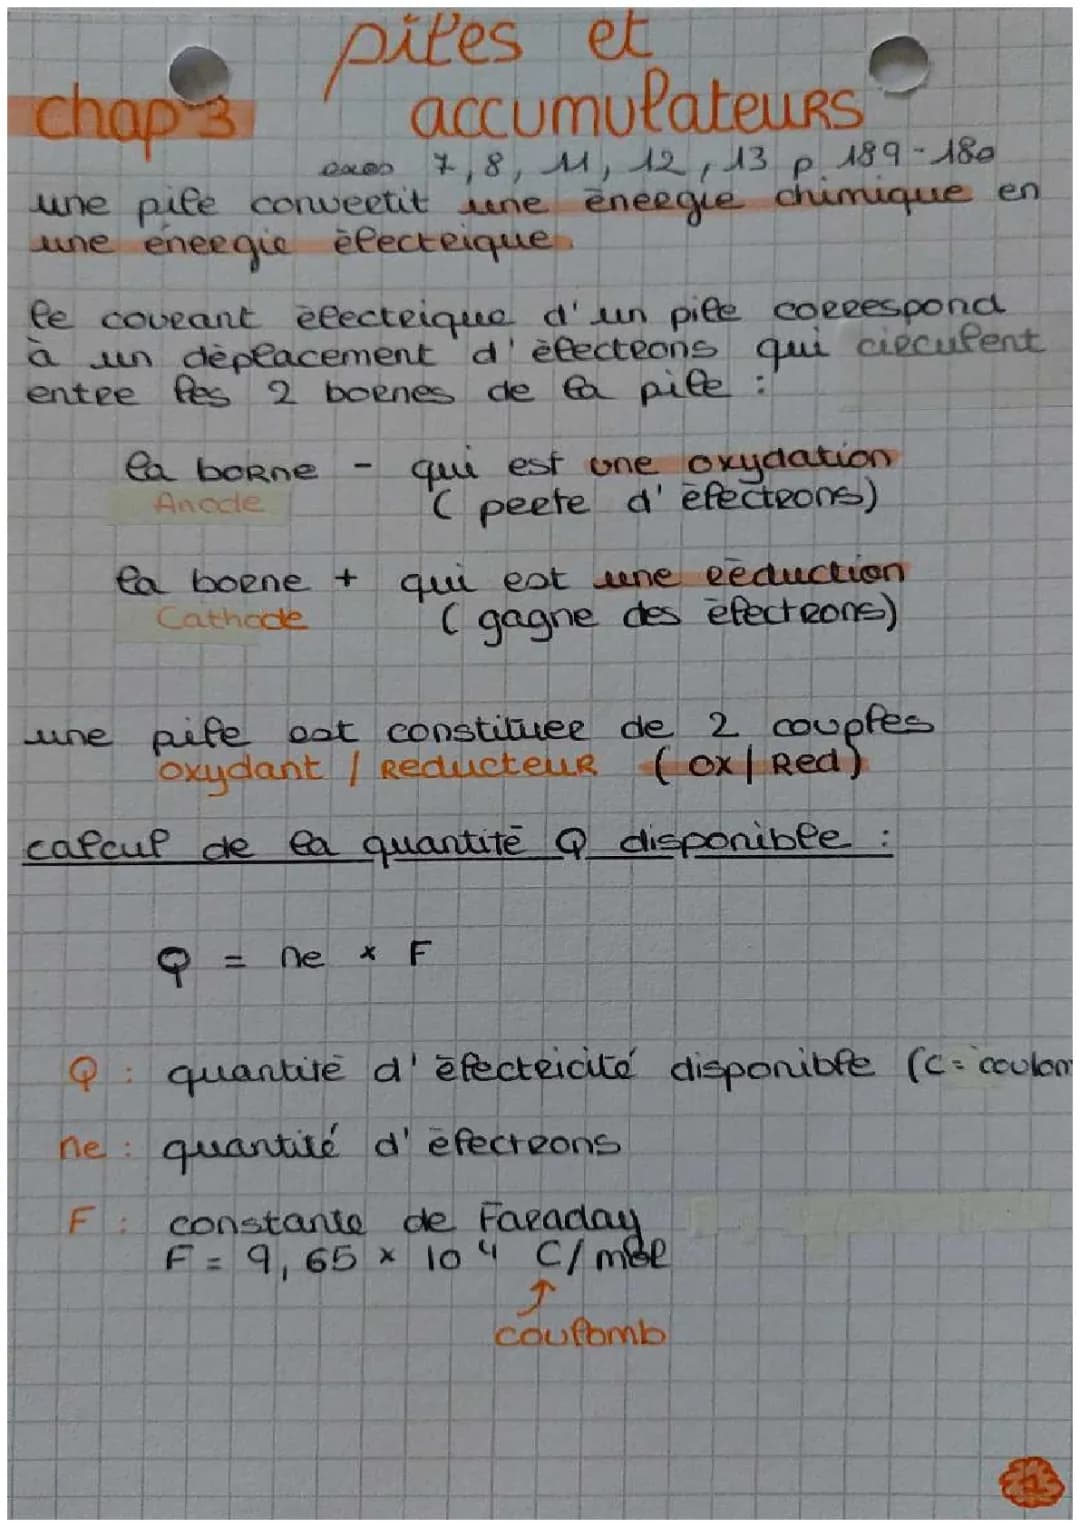 piles et
chap 3 accumulateurs
exos 7, 8, 11, 12, 13 p 189-180
une pile convertit une énergie chimique en
une énergie électrique.
le courant électrique d'un pile correspond
à un déplacement d'électrons qui circulent
entre les 2 bornes de la pile :
la borne - qui est une oxydation
Anode (perte d'électrons)
la borne + qui est une réduction
Cathode (gagne des électrons)
une pile est constituée de 2 couples
oxydant / Reducteur (ox/Red)
calcul de la quantité Q disponible :
Q = ne × F
Q : quantité d'électricité disponible (C = coulom
ne : quantité d'électrons
F : constante de Faraday
F = 9,65 × 10⁴ C/mol
↑
coulomb
1